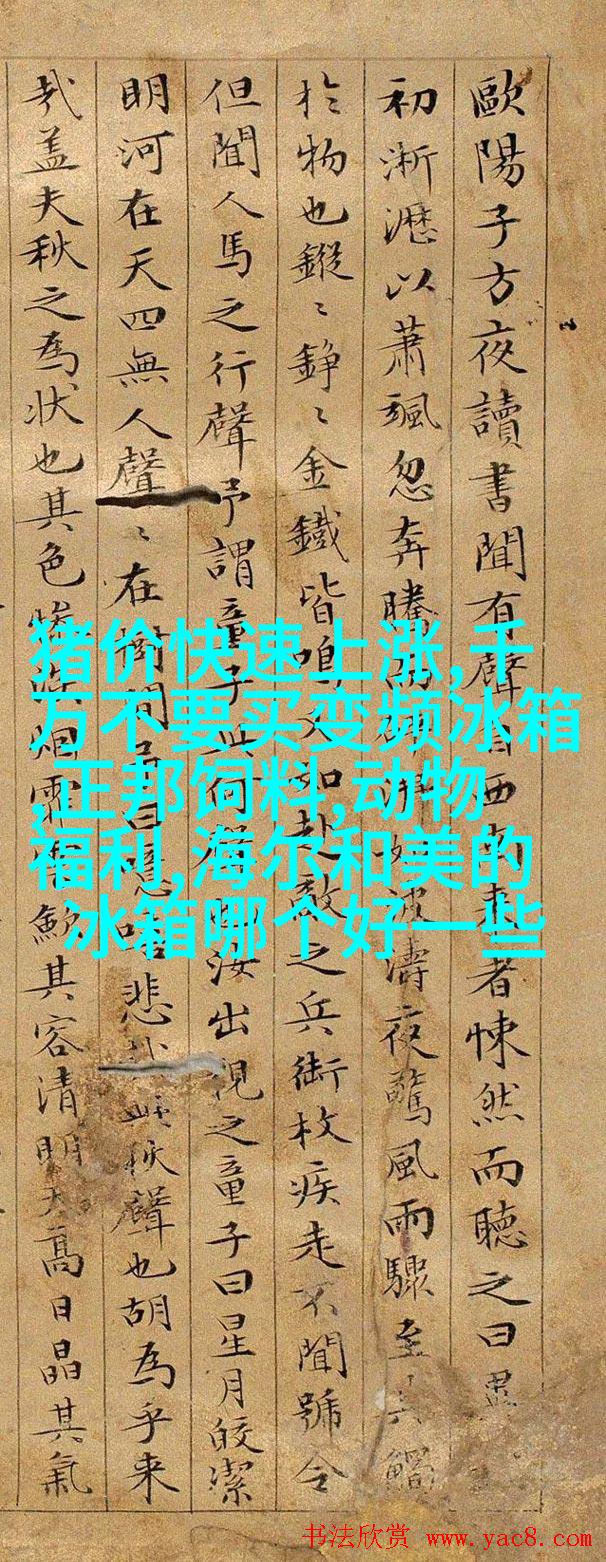 歐陽子方夜讀書聞有聲自西南來者悚然而聽之曰異
初淅瀝以蕭颯忽奔騰而砰湃如波濤夜驚風雨驟至其觸
扵物也鏦〻錚〻金鐵皆鳴又如赴敵之兵銜枚疾走不聞號令
但聞人馬之行聲予謂童子此何聲汝出視之童子曰星月皎潔
明河在天四無人聲〻在樹間予曰噫嘻悲秋聲也胡為乎来
㢤盖夫秋之為狀也其色慘淡烟霏雲斂其容清明天高日晶其氣
猪价快速上涨,千
万不要买变频冰箱
,正邦饲料,动物
福利,海尔和美的
冰箱哪个好一些
书法欣赏 www.yac8.com